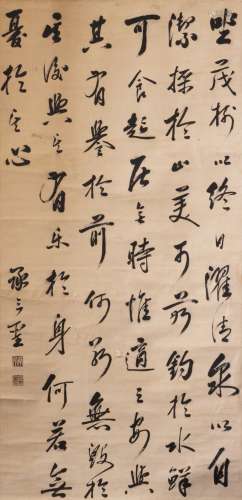 坐茂樹以終日濯清泉以自
潔採於山美可茹釣於水鮮
可食起居無時惟適之安與
其有譽於前何若無毀於
其後與其有樂於身何若無
憂於其心